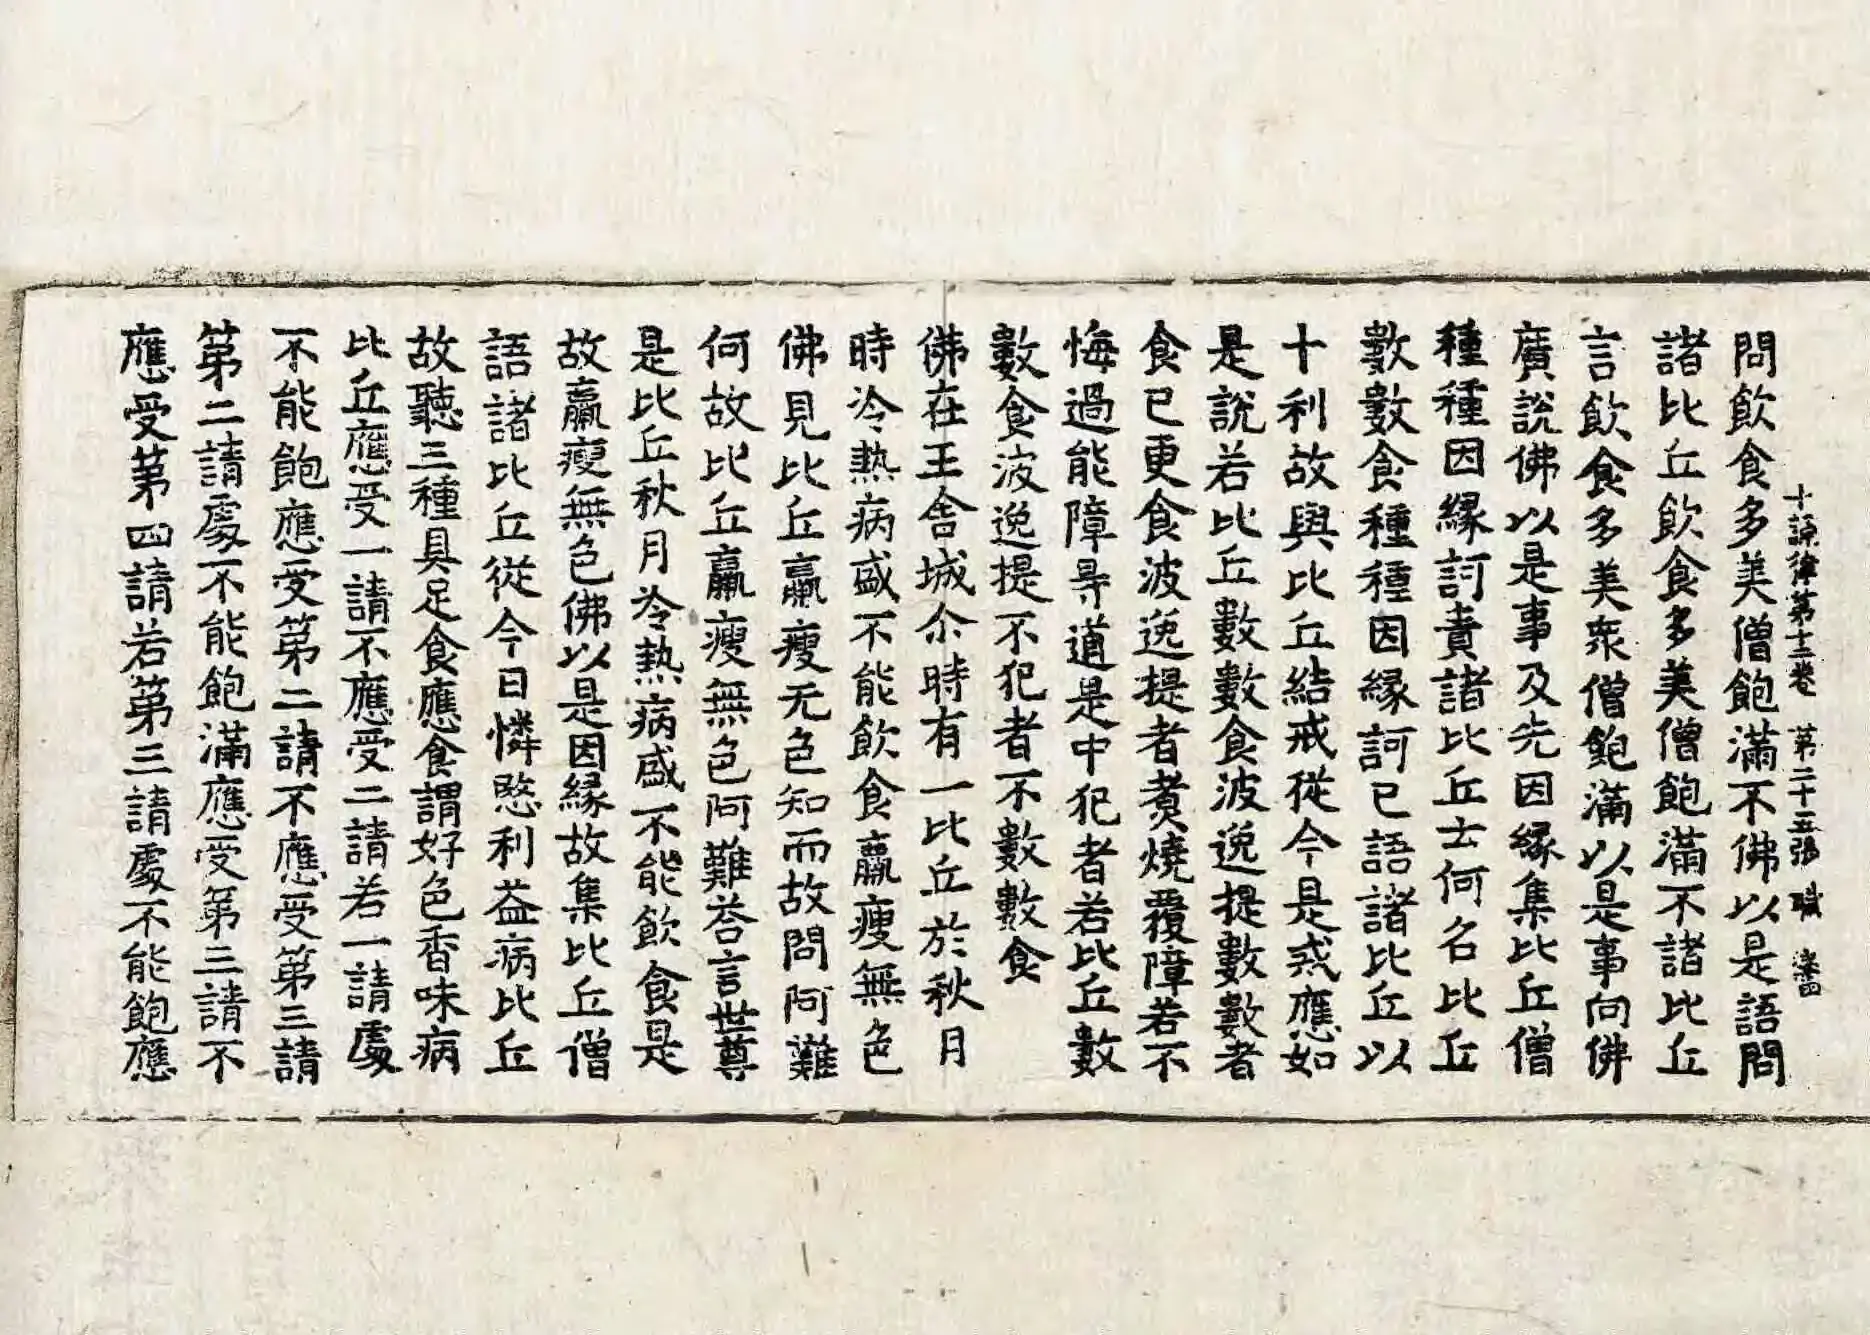 十誦律第十三卷 第二十五張 職
問飲食多美僧飽滿不佛以是語問
諸比丘飲食多美僧飽滿不諸比丘
言飲食多美衆僧飽滿以是事向佛
廣說佛以是事及先因緣集比丘僧
種種因緣訶責諸比丘云何名比丘
數數食種種因緣訶已語諸比丘以
十利故與比丘結戒從今是戒應如
是說若比丘數數食波逸提數數者
食已更食波逸提者煑燒覆障若不
悔過能障㝵道是中犯者若比丘數
數食波逸提不犯者不數數食
佛在王舍城尒時有一比丘於秋月
時冷熱病盛不能飲食羸瘦無色
佛見比丘羸瘦无色知而故問阿難
何故比丘羸瘦無色阿難荅言世尊
是比丘秋月冷熱病盛不能飲食是
故羸瘦無色佛以是因緣故集比丘僧
語諸比丘從今日憐愍利益病比丘
故聽三種具足食應食謂好色香味病
比丘應受一請不應受二請若一請處
不能飽應受第二請不應受第三請
第二請處不能飽滿應受第三請不
應受第四請若第三請處不能飽應